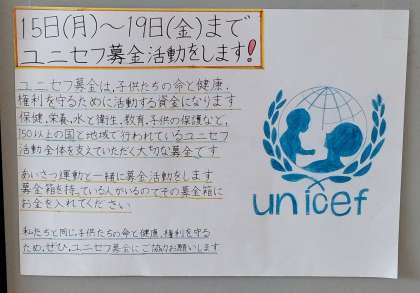 15日(月)～19日(金)まで
ユニセフ募金活動をします!
ユニセフ募金は,子供たちの命と健康,
権利を守るために活動する資金になります
保健,栄養,水と衛生,教育,子供の保護など,
150以上の国と地域で行われているユニセフ
活動全体を支えていただく大切な募金です
あいさつ運動と一緒に募金活動をします
募金箱を持っている人がいるのでその募金箱に
お金を入れてください
私たちと同じ,子供たちの命と健康,権利を守る
ため,ぜひ,ユニセフ募金にご協力お願いします
unicef